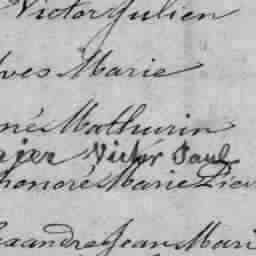 Victor Julien
Yves Marie
né Mathurin
Victor Paul
honoré Marie
exandre Jean Mari